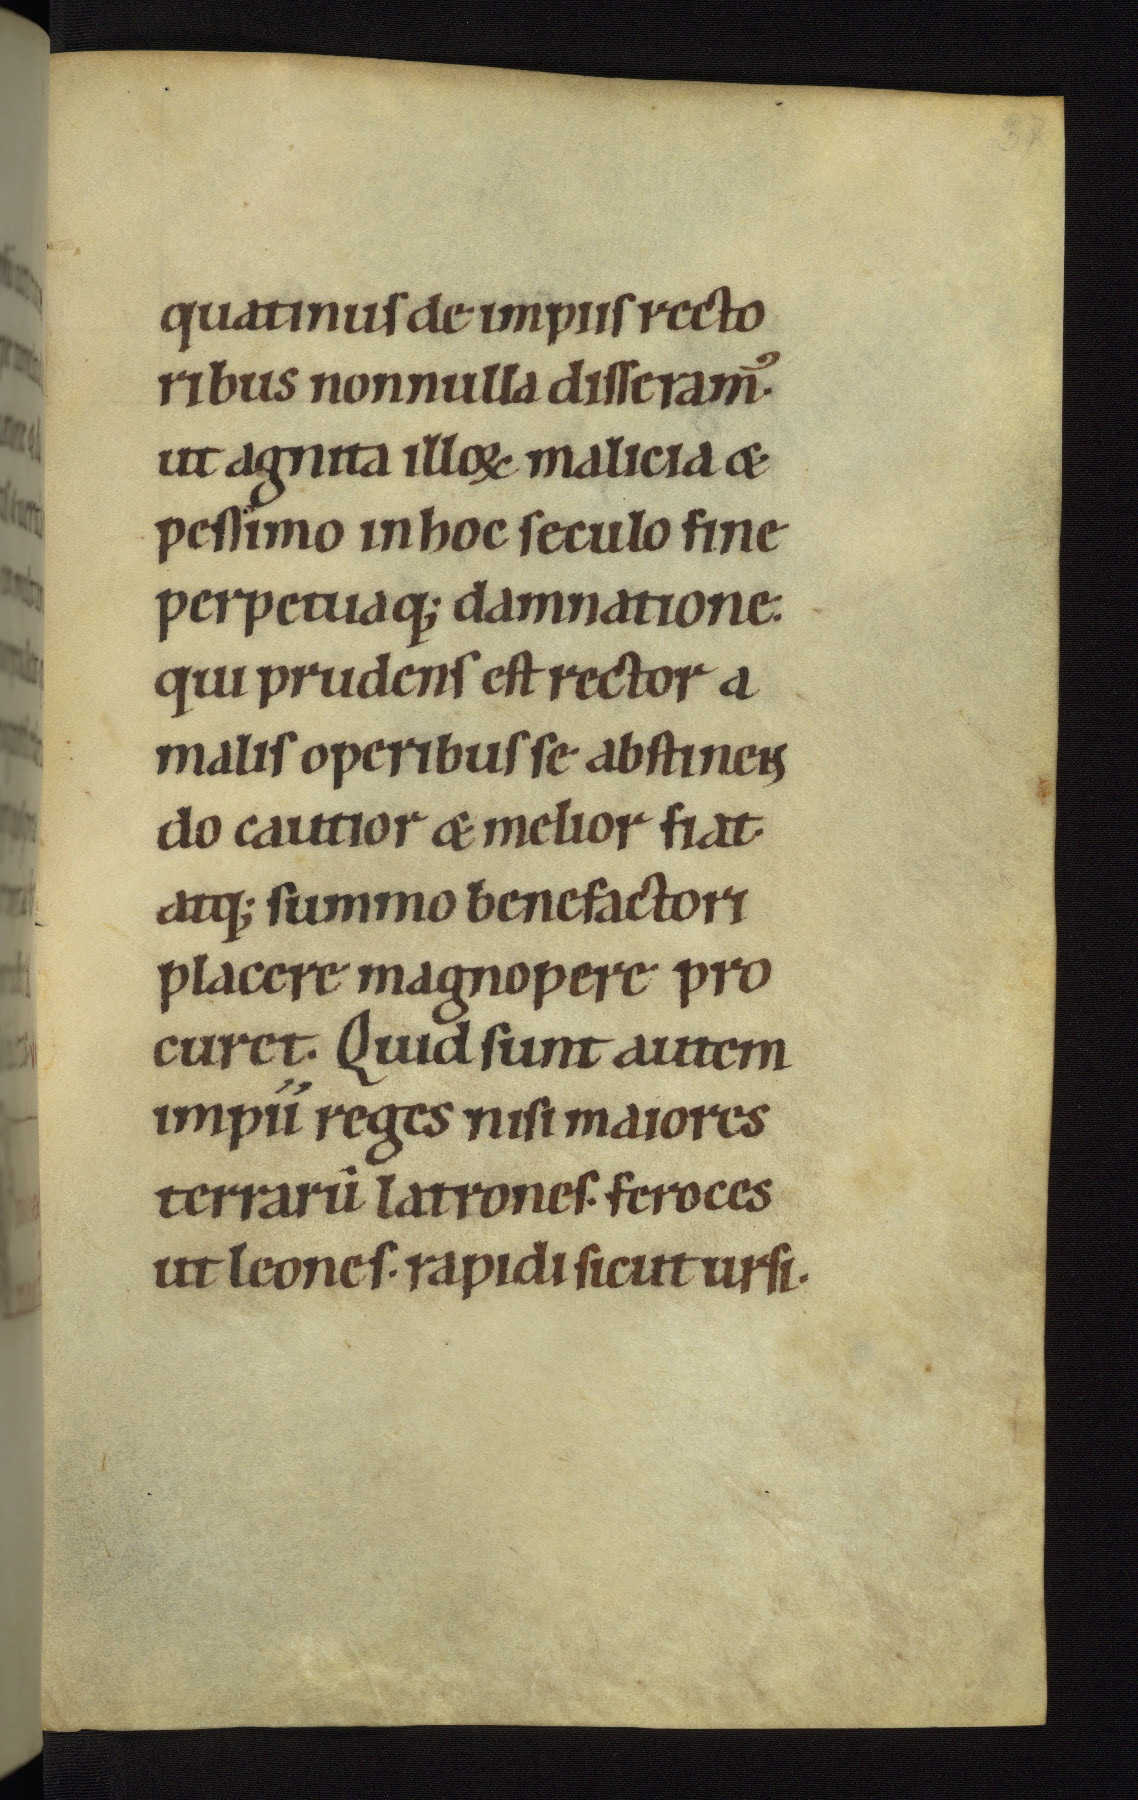 37
quatinuſ de impiiſ recto
ribus nonnulla diſſeramꝰ.
ut agnita illoꝝ malicia &
peſſimo in hoc ſeculo fine
perpetuaq; damnatione.
qui prudenſ eſt rector a
maliſ operibuſ ſe abſtinen
do cautior & melior fiat
atq; ſummo benefactori
placere magnopere pro
curet. Quid ſunt autem
impíí reges niſi maiores
terrarū latroneſ. feroces
ut leoneſ. rapidi ſicut urſi.